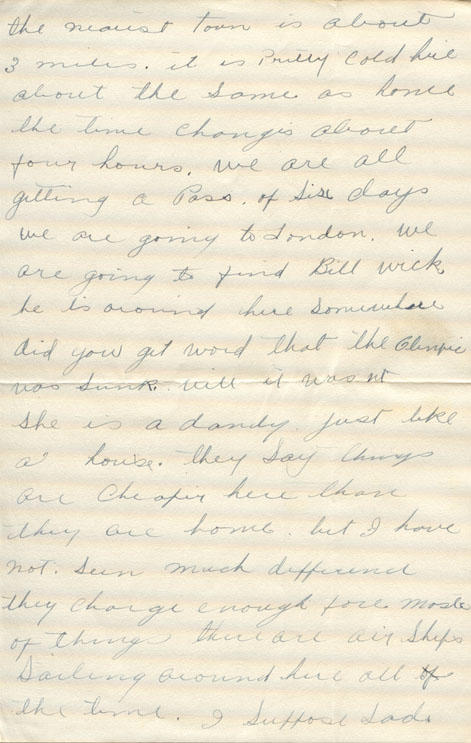 the nearist town is about
3 miles. it is Pritty cold hire
about the same as home
the time changis about
four hours. we are all
gitting a Pass. of Six days
we are going to London. we
are going to find Bill Wick
he is around here somewhere
did you get word that the Olimpic
was Sunk. will it was nt
She is a dandy. just like
a house. they Say things
are Cheapir here than
they are home. but I have
not. Seen much differend
they charge enough fore most
of things there are air Ships
Sailing around here all of
the time. I Suppose